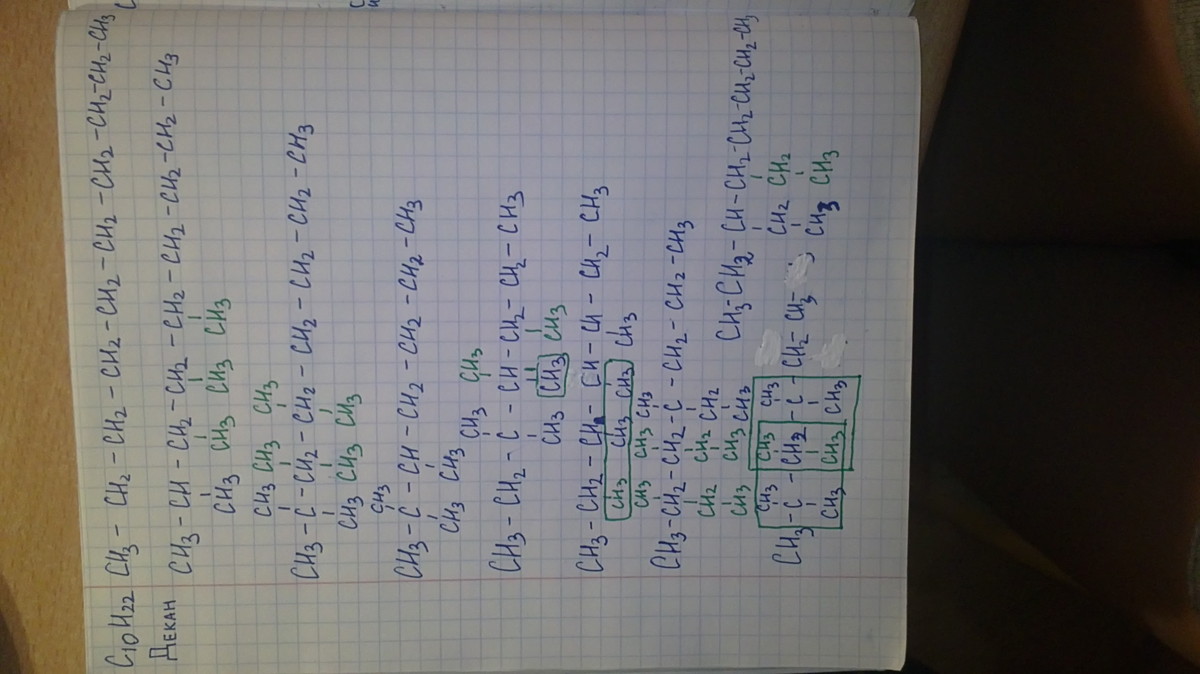 C10H22 CH3 – CH2 – CH2 – CH2 – CH2 – CH2 – CH2 – CH2 – CH2 – CH3
Декан CH3 – CH – CH2 – CH2 – CH2 – CH2 – CH2 – CH2 – CH3
CH3 CH3 CH3 CH3
CH3 CH3 CH3
CH3 – C – CH2 – CH2 – CH2 – CH2 – CH2 – CH3
CH3 CH3 CH3
CH3
CH3 – C – CH – CH2 – CH2 – CH2 – CH3
CH3 CH3
CH3 CH3
CH3 – CH2 – C – CH – CH2 – CH2 – CH3
CH3 CH3 CH3
CH3 – CH2 – CH – CH – CH – CH2 – CH3
CH3 CH3 CH3 CH3
CH3 CH3 CH3
CH3 – CH2 – CH2 – C – CH2 – CH2 – CH3
CH2 CH2 CH2
CH3 CH3 CH3
CH3 – CH2 – CH – CH2 – CH2 – CH2 – CH3
CH2 CH2
CH3 CH3
CH3 CH3 CH3
CH3 – C – CH2 – C – CH2 – CH3
CH3 CH3 CH3